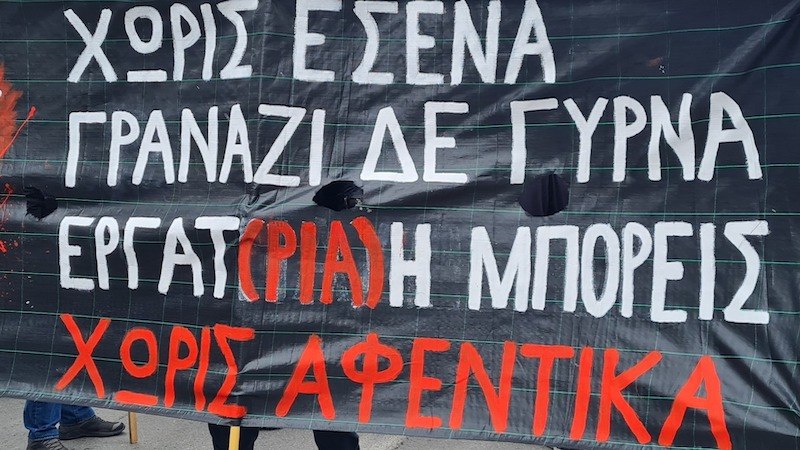 ΧΩΡΙΣ ΕΣΕΝΑ
ΓΡΑΝΑΖΙ ΔΕ ΓΥΡΝΑ
ΕΡΓΑΤ(ΡΙΑ)Η ΜΠΟΡΕΙΣ
ΧΩΡΙΣ ΑΦΕΝΤΙΚΑ